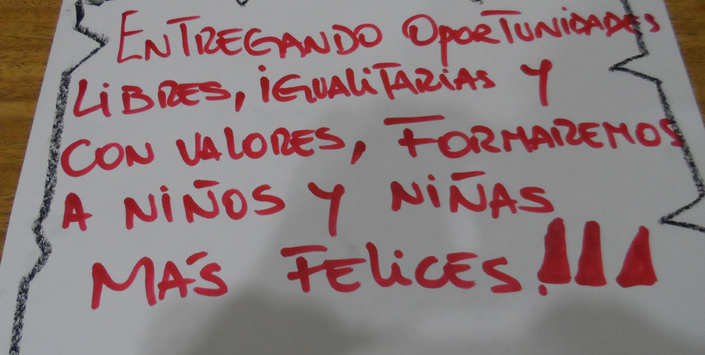 ENTREGANDO OPORTUNIDADES
LIBRES, IGUALITARIAS Y
CON VALORES, FORMAREMOS
A NIÑOS Y NIÑAS
MÁS FELICES!!!